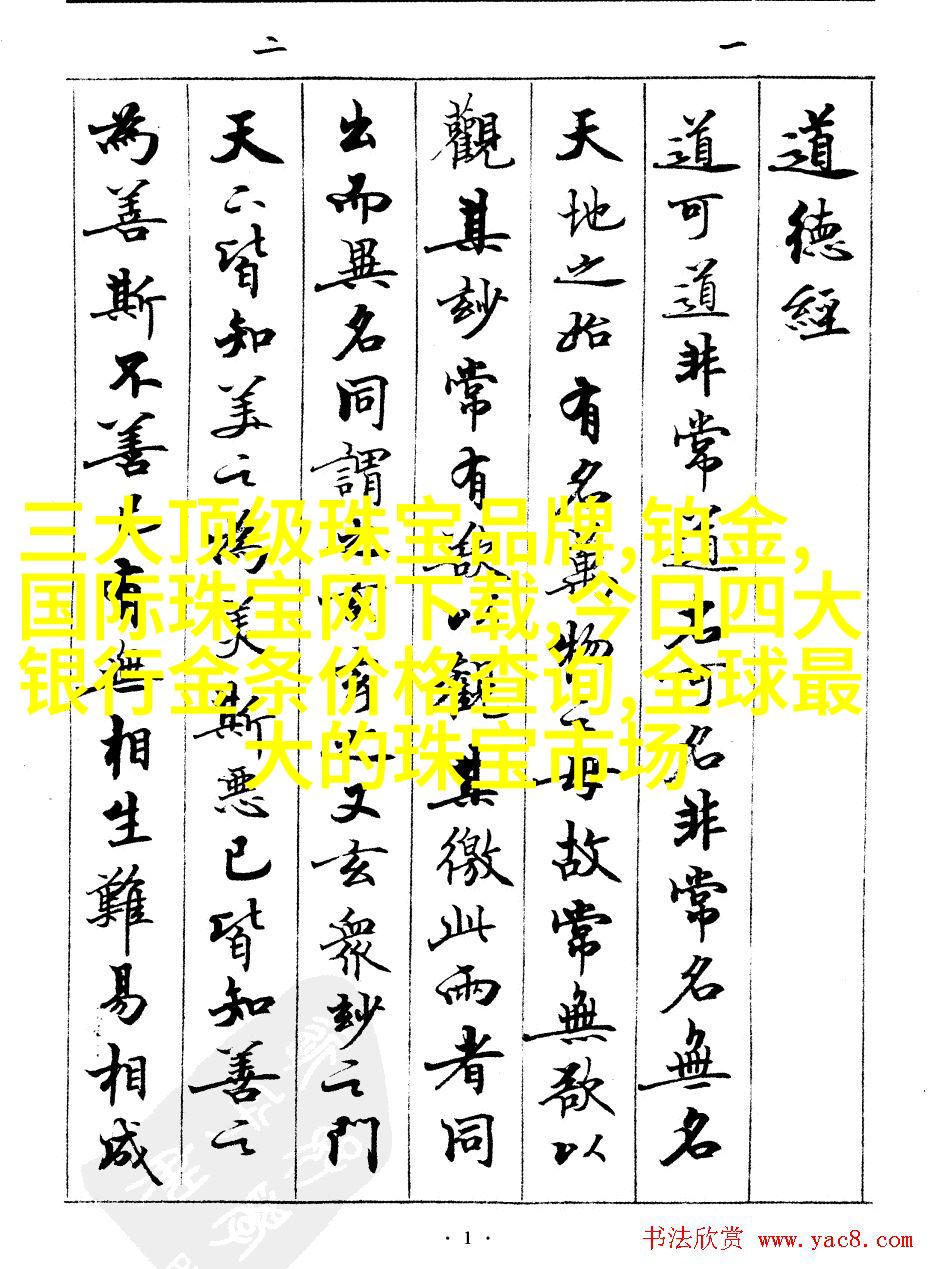 一
二
道德經
道可道非常道名可名非常名無名
天地之始有名萬物之母故常無欲以
觀其玅常有欲以觀其徼此兩者同
出而異名同謂之玄玄之又玄眾玅之門
天下皆知美之為美斯惡已皆知善之
為善斯不善已有無相生難易相成
三大顶级珠宝品牌,铂金,
国际珠宝网下载,今日四大
银行金条价格查询,全球最
大的珠宝市场
· 1 ·
书法欣赏 www.yac8.com